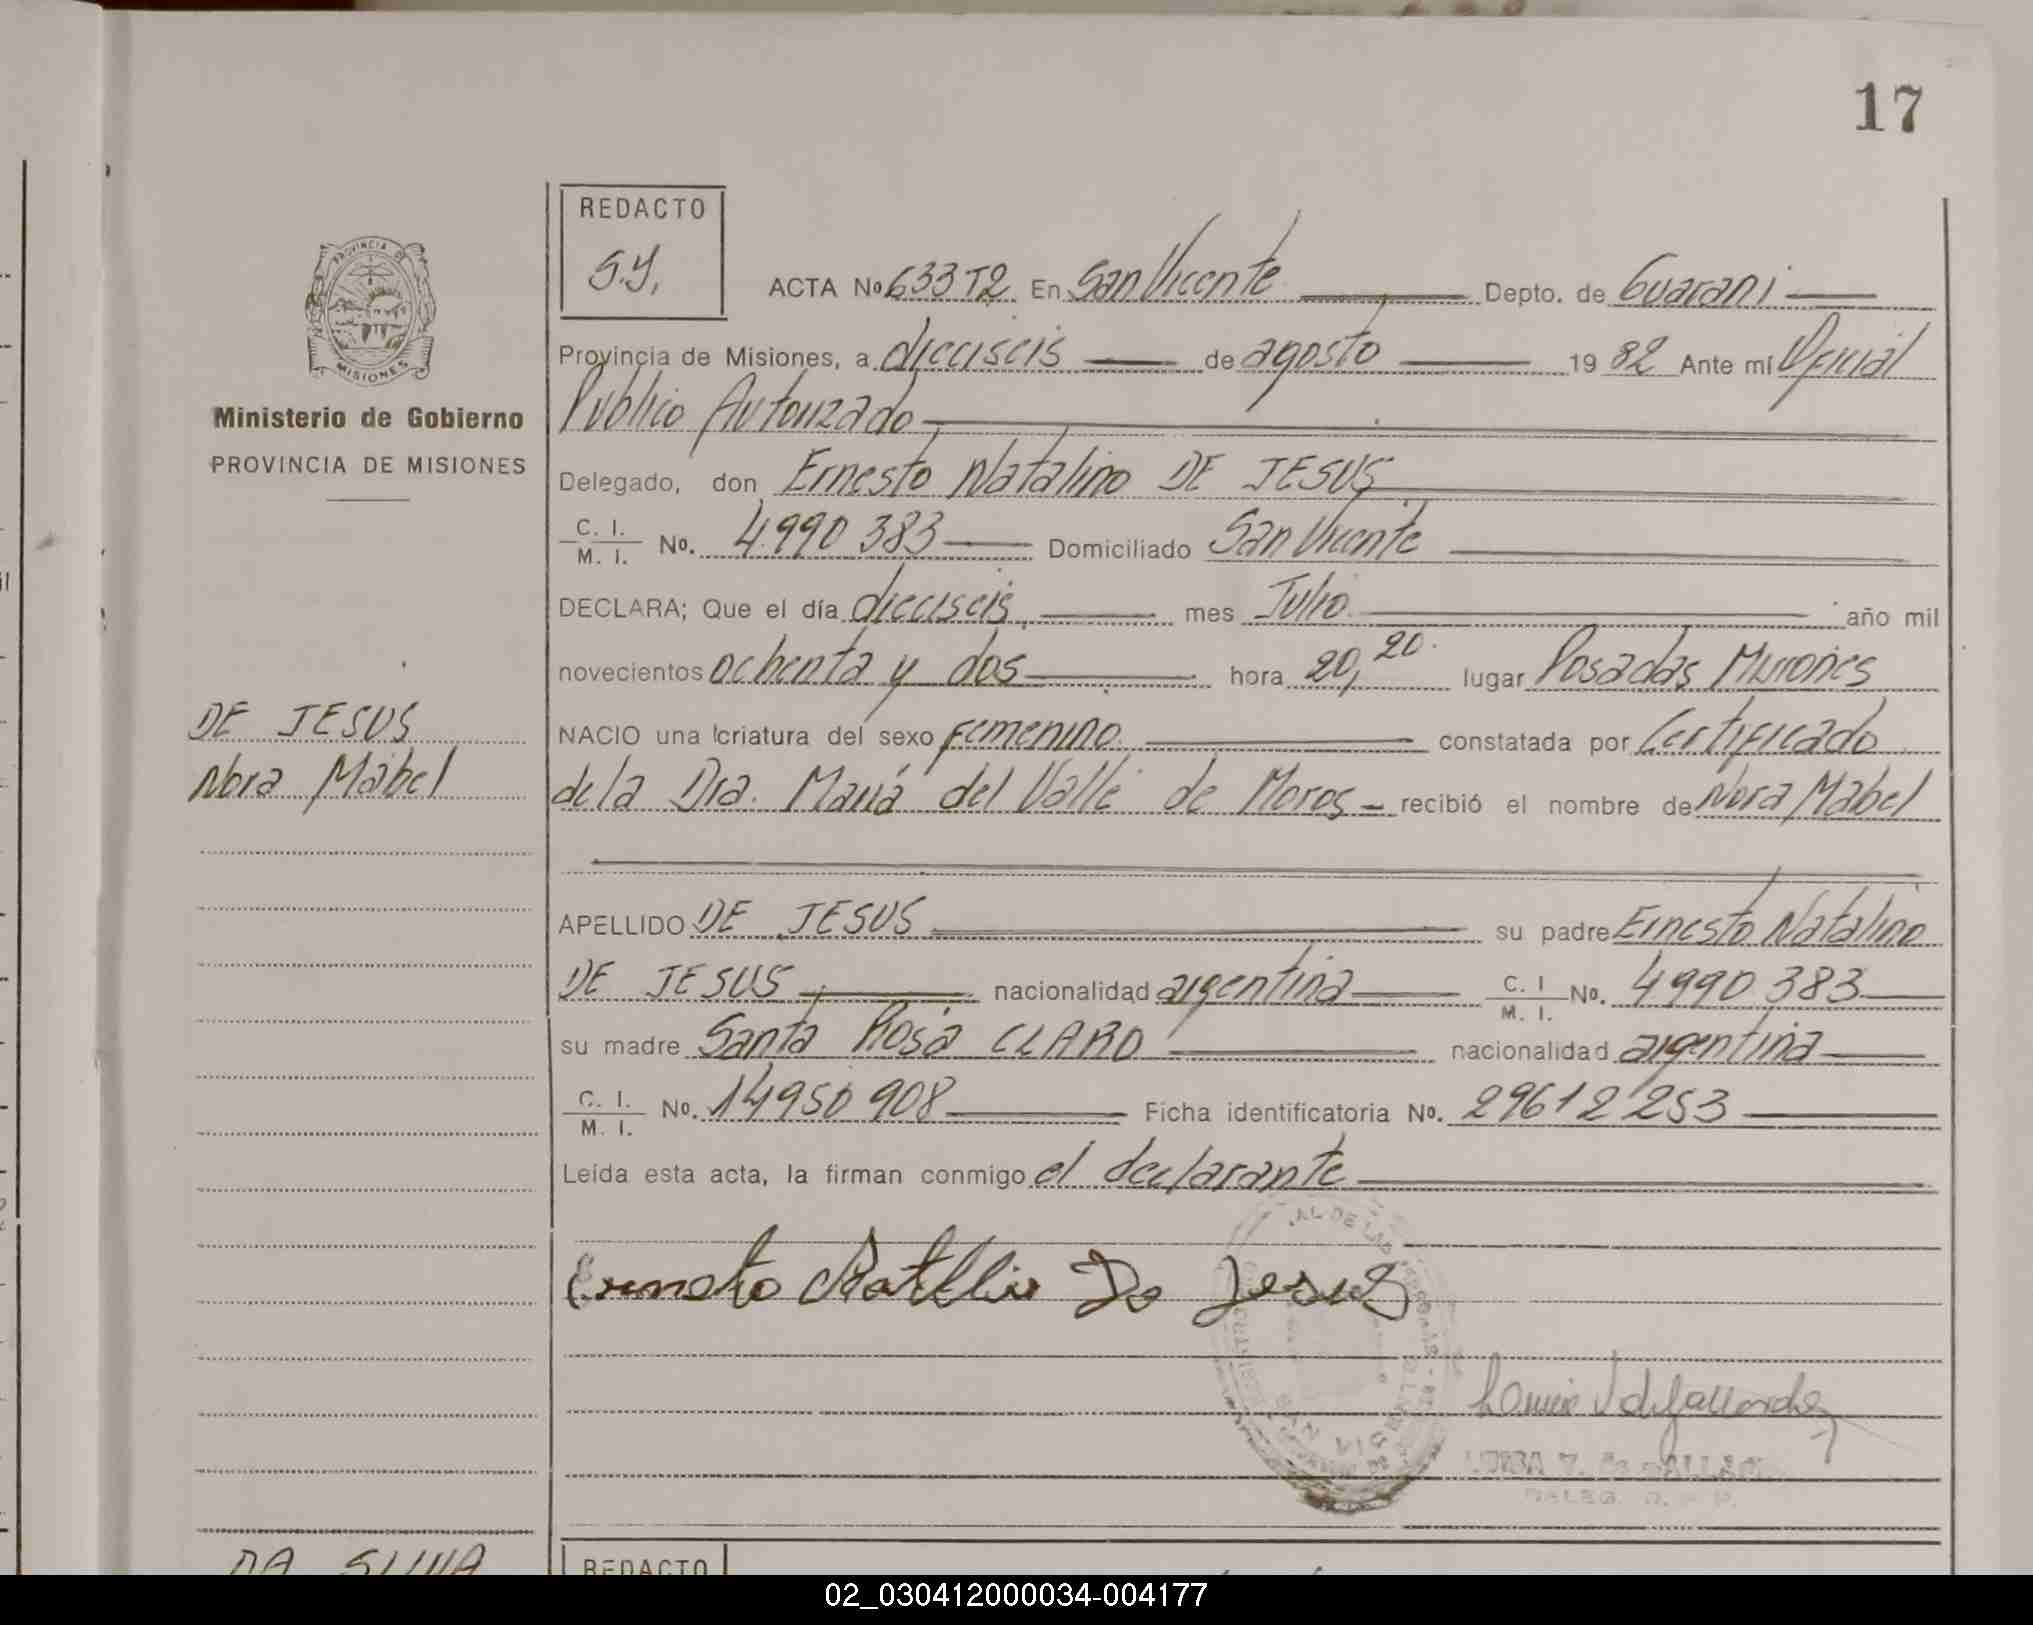 17
REDACTO
S.Y.
ACTA No 633T2 En San Vicente Depto. de Guarani
Provincia de Misiones, a dieciseis de agosto 1982 Ante mí Oficial
Publico Autorizado
Delegado, don Ernesto Natalino DE JESUS
C. I. M. I. No. 4.990 383 Domiciliado San Vicente
DECLARA; Que el día dieciseis, mes Julio año mil
novecientos ochenta y dos hora 20,20 lugar Posadas Misiones
NACIO una criatura del sexo femenino constatada por Certificado
de la Dra. María del Valle de Moros recibió el nombre de Nora Mabel
APELLIDO DE JESUS su padre Ernesto Natalino
DE JESUS nacionalidad argentina C. I M. I. No. 4990.383
su madre Santa Rosa CLARO nacionalidad argentina
C. I. M. I. No. 14950 908 Ficha identificatoria No. 29612253
Leída esta acta, la firman conmigo el declarante
PROVINCIA DE
MISIONES
Ministerio de Gobierno
PROVINCIA DE MISIONES
DE JESUS
Nora Mabel
De Jesus
SAN VIC
DA SILVA
REDACTO
02_030412000034-004177